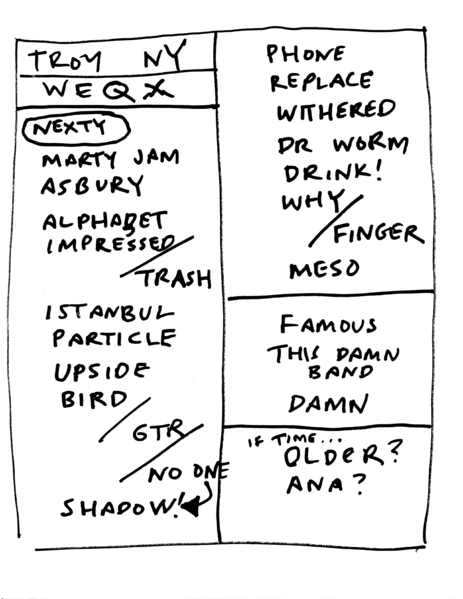 TROY NY
WEQX
NEXTY
MARTY JAM
ASBURY
ALPHABET
IMPRESSED
TRASH
ISTANBUL
PARTICLE
UPSIDE
BIRD
GTR
NO ONE
SHADOW!
PHONE
REPLACE
WITHERED
DR WORM
DRINK!
WHY
FINGER
MESO
FAMOUS
THIS DAMN
BAND
DAMN
IF TIME...
OLDER?
ANA?